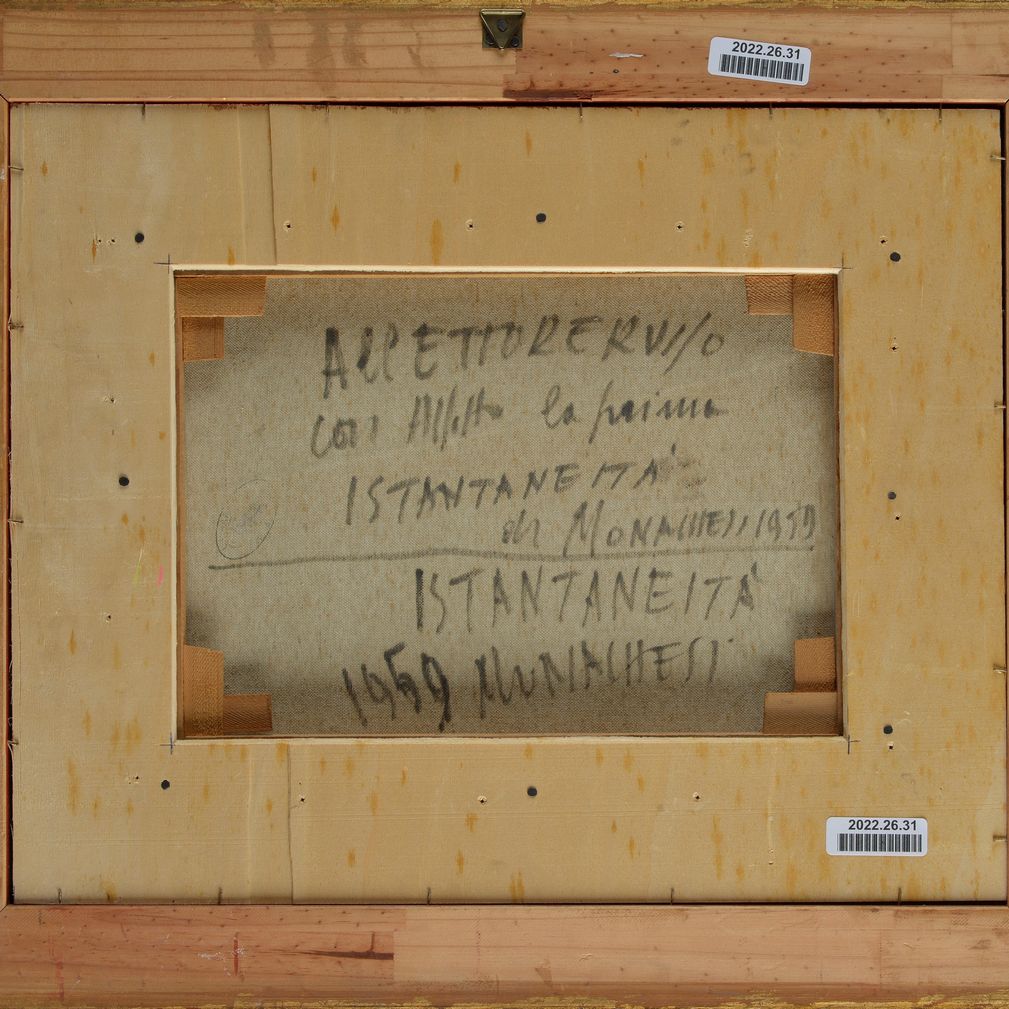 2022.26.31
All ETTORE RUSSO
con Affetto la prima
ISTANTANEITÀ
di MONACHESI 1959
ISTANTANEITÀ
1959 MONACHESI
2022.26.31